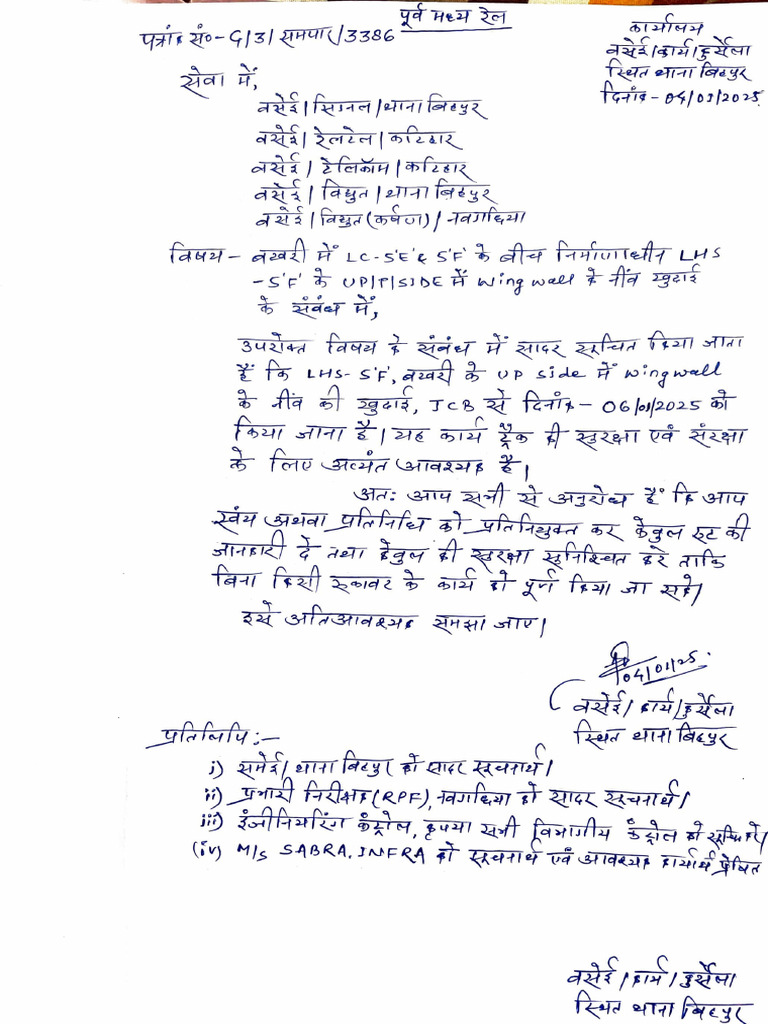 पूर्व मध्य रेल
पत्रांक सं०- G/3/समपार/3386
कार्यालय
वसेई/कार्य/कुर्सेला
स्थित थाना बिहपुर
दिनांक - 04/01/2025
सेवा में,
वसेई/सिग्नल/थाना बिहपुर
वसेई/रेलटेल/कटिहार
वसेई/टेलिकॉम/कटिहार
वसेई/विद्युत/थाना बिहपुर
वसेई/विद्युत (कर्षण)/नवगछिया
विषय - बखरी में LC-5'E' & 5'F' के बीच निर्माणाधीन LHS
-5'F' के UP/P/SIDE में wing wall के नींव खुदाई
के संबंध में,
उपरोक्त विषय के संबंध में सादर सूचित किया जाता
हैं कि LHS-5'F', बखरी के UP side में wing wall
के नींव की खुदाई, JCB से दिनांक - 06/01/2025 को
किया जाना है। यह कार्य ट्रैक की सुरक्षा एवं संरक्षा
के लिए अत्यंत आवश्यक है।
अतः आप सभी से अनुरोध हैं कि आप
स्वंय अथवा प्रतिनिधि को प्रतिनियुक्त कर केवुल रुट की
जानकारी दे तथा केवुल की सुरक्षा सुनिश्चित करे ताकि
बिना किसी रुकावट के कार्य को पूर्ण किया जा सके।
इसे अतिआवश्यक समझा जाए।
04/01/25
वसेई/कार्य/कुर्सेला
स्थित थाना बिहपुर
प्रतिलिपि:-
i) समेई/थाना बिहपुर को सादर सूचनार्थ।
ii) प्रभारी निरीक्षक (RPF), नवगछिया को सादर सूचनार्थ।
iii) इंजीनियरिंग कंट्रोल, कृपया सभी विभागीय कंट्रोल को सूचित करें।
(iv) M/s SABRA. INFRA को सूचनार्थ एवं आवश्यक कार्यार्थ प्रेषित
वसेई/कार्य/कुर्सेला
स्थित थाना बिहपुर